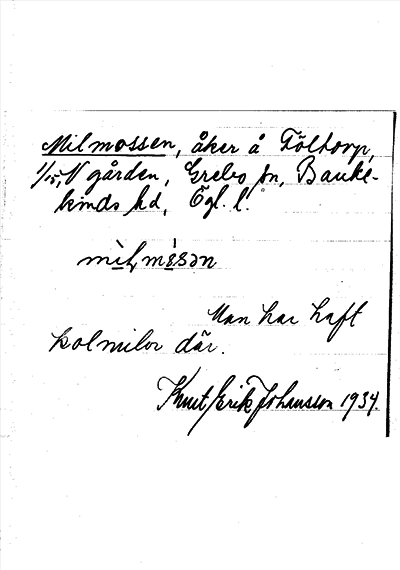 Milmossen, åker å Föltorp,
1/15, N gården, Grebo sn, Banke-
kinds hd, Ögl. l.
mìl,mɞ́sən
Man har haft
kolmilor där.
Knut Erik Johansson 1934.